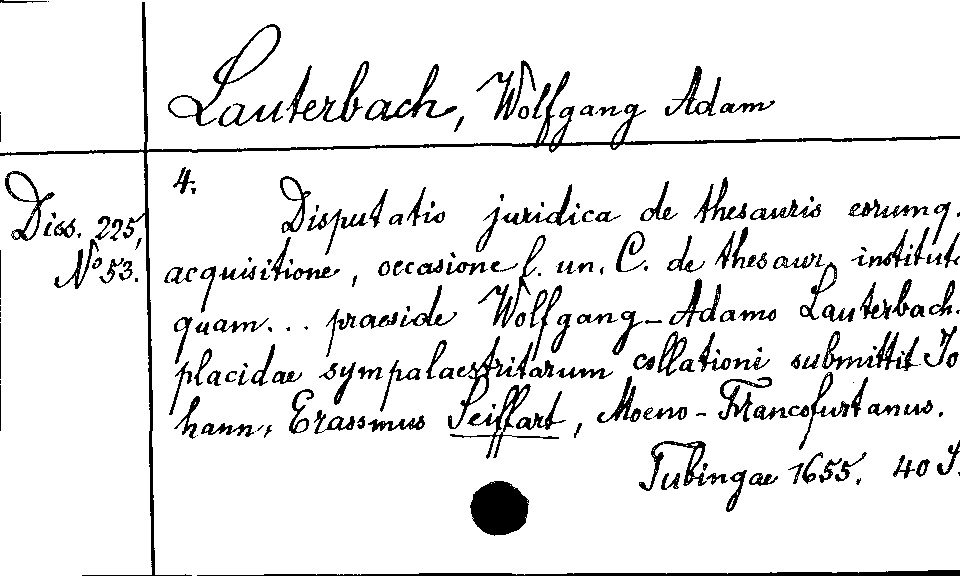 Lauterbach, Wolfgang Adam
4.
Diss. 225,
No 53.
Disputatio juridica de thesauris eorumq.
acquisitione, occasione l. un. C. de thesaur. institut
quam... praeside Wolfgang-Adamo Lauterbach.
placidae sympalaestritarum collationi submittit Jo
hann, Erassmus Seiffart, Moeno-Francofurtanus.
Tubingae 1655. 40 S.